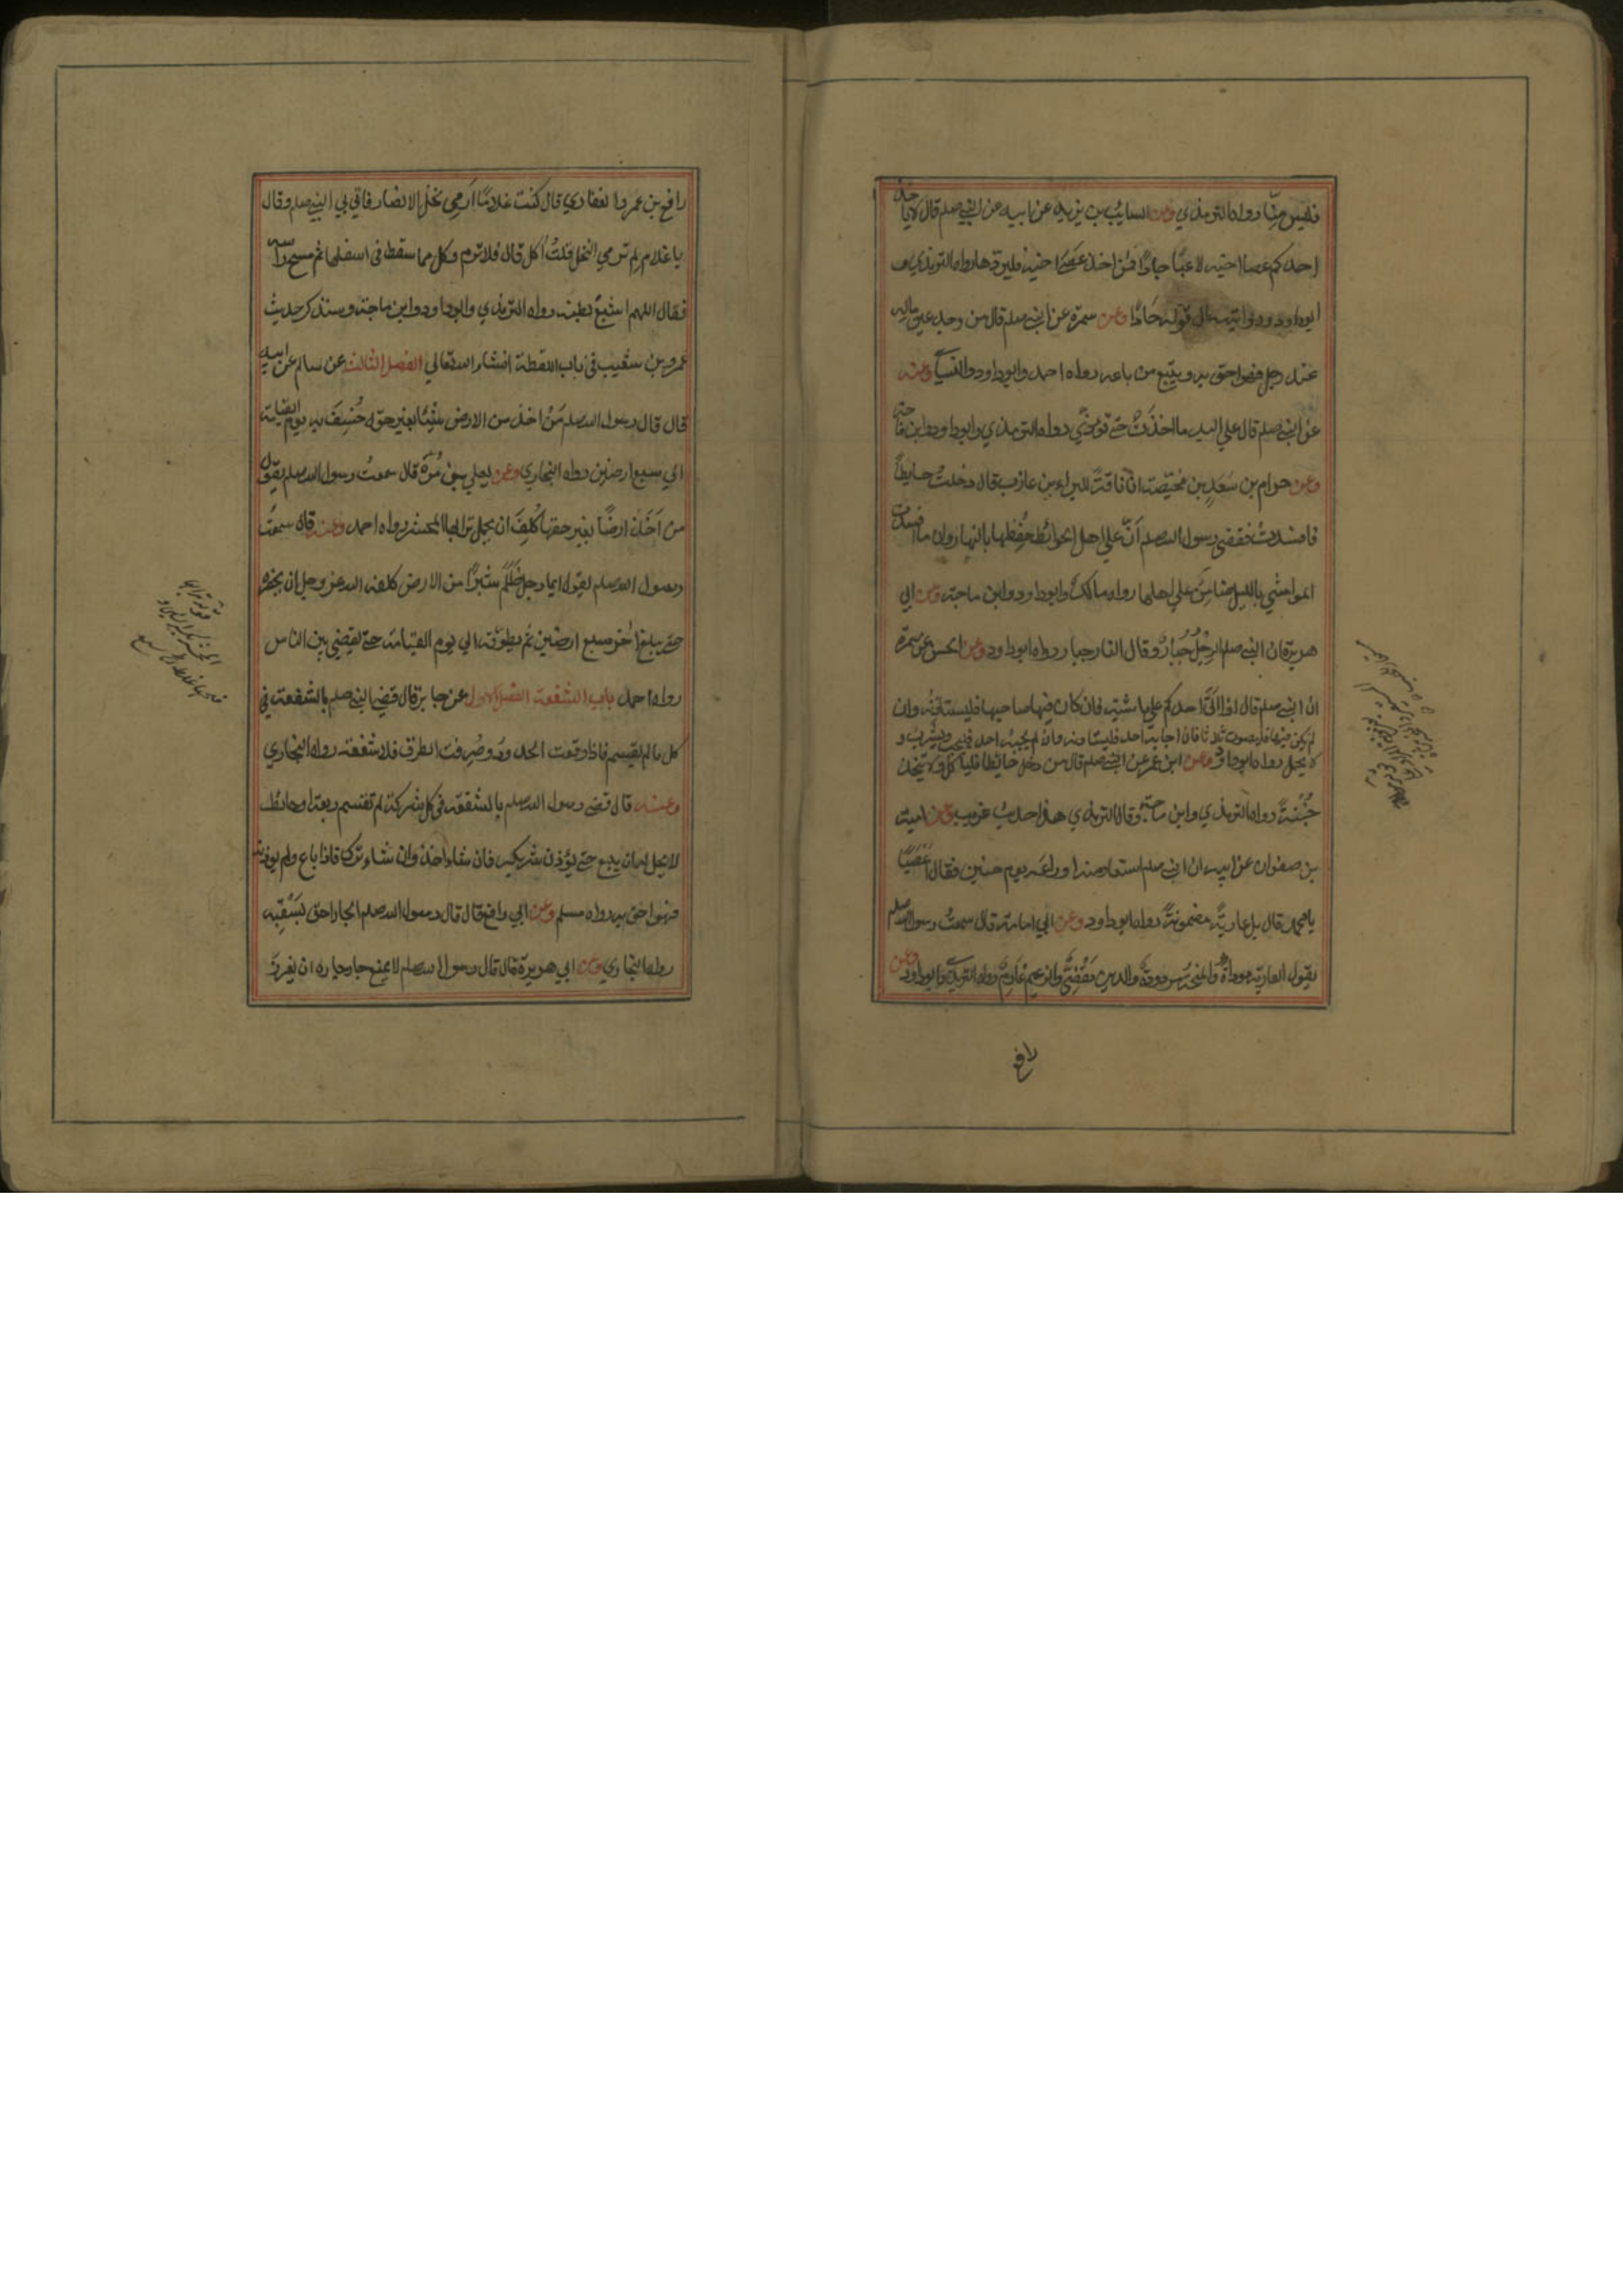 فليس منا رواه الترمذي وعن السائب بن يزيد عن ابيه عن النبي صلم قال لا ياخذ
احدكم عصا اخيه لاعبا جادا فمن اخذ عصا اخيه فليردها رواه الترمذي و
ابوداود وروايته الي قوله جادا وعن سمرة عن النبي صلم قال من وجد عين ماله
عند رجل فهو احق به ويتبع من باعه رواه احمد وابوداود والنسائي وعنه
عن النبي صلم قال علي اليد ما اخذت حتي تؤدي رواه الترمذي وابوداود وابن ماجة
وعن حرام بن سعد بن محيصة ان ناقة للبراء بن عازب قال دخلت حايطا
فافسدت فقضي رسول الله صلم ان علي اهل الحوائط حفظها بالنهار وان ما افسدت
المواشي بالليل ضامن علي اهلها رواه مالك وابوداود وابن ماجة وعن ابي
هريرة ان النبي صلم الرجل جبار وقال النار جبار رواه ابوداود وعن الحسن عن سمرة
ان النبي صلم قال اذا اتي احدكم علي ماشية فان كان فيها صاحبها فليستاذنه وان
لم يكن فيها فليصوت ثلاثا فان اجابه احد فليستاذنه وان لم يجبه احد فليحتلب وليشرب و
لا يحمل رواه ابوداود وعن ابن عمر عن النبي صلم قال من دخل حائطا فلياكل ولا يتخذ
خبنة رواه الترمذي وابن ماجة وقال الترمذي هذا حديث غريب وعن امية
بن صفوان عن ابيه ان النبي صلم استعار منه ادراعه يوم حنين فقال اغصبا
يا محمد قال بل عارية مضمونة رواه ابوداود وعن ابي امامة قال سمعت رسول الله صلم
يقول العارية موداة والمنحة مردودة والدين مقضي والزعيم غارم رواه الترمذي وابوداود وعن
رافع بن عمرو الغفاري قال كنت غلاما ارمي نخل الانصار فاتي بي النبي صلم وقال
يا غلام لم ترمي النخل قلت آكل قال فلا ترم وكل مما سقط في اسفلها ثم مسح راسه
فقال اللهم اشبع بطنه رواه الترمذي وابوداود وابن ماجة وسنذكر حديث
عمرو بن شعيب في باب اللقطة انشاء الله تعالي الفصل الثالث عن سالم عن ابيه
قال قال رسول الله صلم من اخذ من الارض شيئا بغير حقه خسف به يوم القيامة
الي سبع ارضين رواه البخاري وعن يعلي بن مرة قال سمعت رسول الله صلم يقول
من اخذ ارضا بغير حقها كلف ان يحمل ترابها المحشر رواه احمد وعنه قال سمعت
رسول الله صلم يقول ايما رجل ظلم شبرا من الارض كلفه الله عز وجل ان يحفره
حتي يبلغ اخر سبع ارضين ثم يطوقه الي يوم القيامة حتي يقضي بين الناس
رواه احمد باب الشفعة الفصل الاول عن جابر قال قضي النبي صلم بالشفعة في
كل ما لم يقسم فاذا وقعت الحدود وصرفت الطرق فلا شفعة رواه البخاري
وعنه قال قضي رسول الله صلم بالشفعة في كل شركة لم تقسم ربعة او حائط
لا يحل له ان يبيع حتي يؤذن شريكه فان شاء اخذ وان شاء ترك فاذا باع ولم يوذنه
فهو احق به رواه مسلم وعن ابي رافع قال قال رسول الله صلم الجار احق بسقبه
رواه البخاري وعن ابي هريرة قال قال رسول الله صلم لا يمنع جار جاره ان يغرز